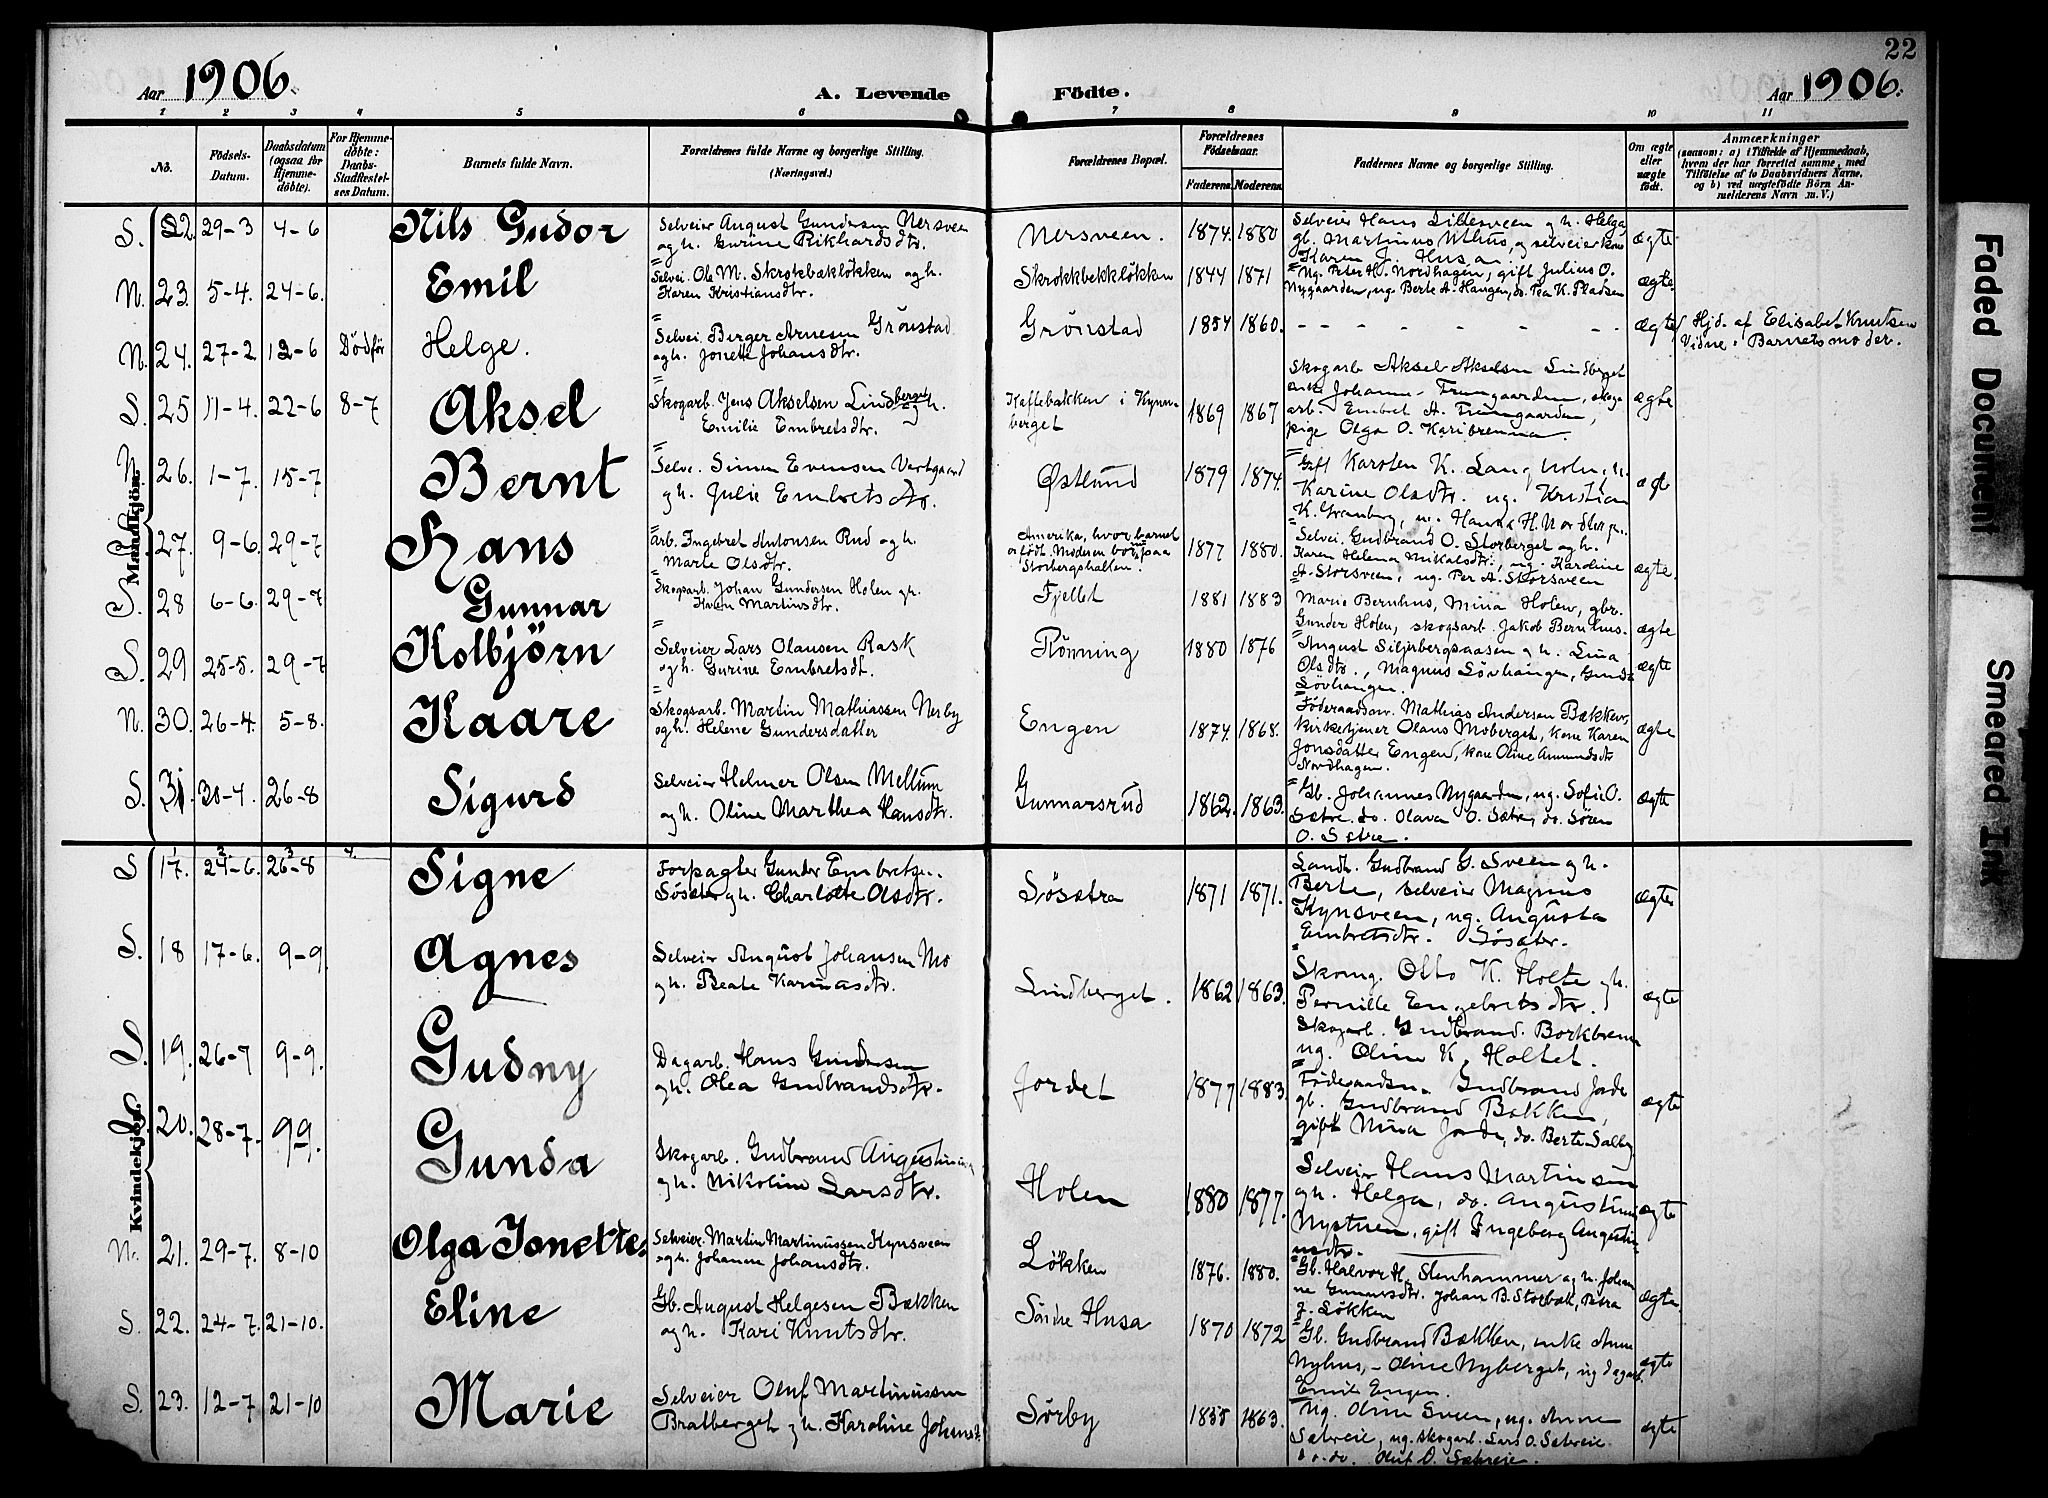 22
Aar 1906.
A. Levende Fødte.
Aar 1906.
1 2 3 4 5 6 7 8 9 10 11
No.
Fødsels-Datum.
Daabsdatum (ogsaa for Hjemme-døbte).
For Hjemme-døbte: Daabs-Stadfæstel-ses Datum.
Barnets fulde Navn.
Forældrenes fulde Navne og borgerlige Stilling. (Næringsvei.)
Forældrenes Bopæl.
Forældrenes Fødselsaar.
Faderens. Moderens.
Faddernes Navne og borgerlige Stilling.
Om ægte eller uægte født.
Anmærkninger
(saasom: a) i Tilfælde af Hjemmedaab, hvem der har forrettet samme, med Tilføielse af to Daabsvidners Navne, og b) ved uægtefødte Børn An-melderens Navn m. V.)
Mandkjøn.
S. 22. 29-3 4-6 Nils Gudor
Selveier August Gundersen Nersveen
og h. Gurine Rikhardsdtr.
Nersveen. 1874. 1880
Selveier Hans Lillesveen og h. Helga,
gb. Martinus Nthus, og selveierkone
Karen J. Husa
ægte
N. 23. 5-4. 24-6. Emil
Selvei. Ole M. Skrokbækløkken og h.
Karen Kristiansdtr.
Skrokkbekkløkken 1844 1871
Ug. Peter H. Nordhagen, gift Julius O.
Nygaarden, ug. Berte A. Haugen, do. Pea K. Pladsen
ægte.
N. 24. 27-2 12-6 Dödför Helge.
Selvei. Berger Arnesen Grönstad
og h. Jonette Johansdtr.
Grönstad 1854 1860.
- - - - - - - -
ægte
Hjd. af Elisabet Knutsen
Vidne: Barnets moder.
S. 25 11-4. 22-6 8-7 Aksel
Skogarb. Jens Akselsen Lindberget og h.
Emilie Embretsdtr.
Kaffebakken i Kynn-
berget
1869 1867
Skogarb Aksel Akselsen Lindberget
enke Johanne Frengaarden, skog
arb. Embret A. Frengaarden,
pige Olga O. Karibrenna.
ægte
N. 26. 1-7. 15-7 Bernt
Selve. Simen Evensen Vestgaard
og h. Julie Embretsdtr.
Østlund 1879 1874.
Gift Karsten K. Langholm, h.
Karine Olsdtr. ug. Kristian
K. Granberg, ug. Hanna H. Nordhagen.
ægte
S. 27. 9-6. 29-7 Hans
Arb. Ingebret Antonsen Rud og h.
Marte Olsdtr.
Amerika, hvor barnet
er födt. Moderen bor nu paa
Storbergshalten.
1877 1880.
Selvei. Gudbrand O. Storberget og h.
Karen Helena Mikalsdtr., ug. Karoline
A. Storsveen, ug. Per A. Storsveen
ægte.
S. 28 6-6. 29-7 Gunnar
Skogsarb. Johan Gundersen Holen g h.
Karen Martinsdtr.
Fjellet 1881 1883
Marie Bernhus, Mina Holen, gbr.
Gunder Holen, skogsarb. Jakob Bernhus.
ægte
S. 29 25-5. 29-7 Kolbjörn
Selveier Lars Olausen Rask
og h. Gurine Embretsdt.
Rönning 1880 1876
August Siljebergsaasen og h. Lina
Olsdtr., Magnus Lövhaugen, Gunda
Lövhaugen.
ægte
N. 30. 26-4. 5-8. Kaare
Skogsarb. Martin Mathiassen Nerby
og h. Helene Gundersdatter
Engen 1874. 1868.
Föderaadsm. Mathias Andersen Bækken,
kirketjener Olaus Moberget, kone Karen
Jonsdatter Engen, kone Oline Amundsdtr
Nordhagen.
ægte
S. 31. 30-4. 26-8 Sigurd
Selveier Helmer Olsen Mellum
og h. Oline Marthea Hansdtr.
Gunnarsrud 1862. 1863.
Gb. Johannes Nygaarden, ug. Sofie O.
Sætre. do. Olava O. Sætre, do. Sören
O. Sætre.
ægte
Kvindekjøn.
S 17. 24-6. 26-8 Signe
Forpagter Gunder Embretsen
Søsæter og h. Charlotte Olsdtr.
Søsætra 1871 1871.
Landh. Gudbrand G. Sveen og h.
Berte, selveier Magnus
Kynsveen, ug. Augusta
Embretsdtr. Søsæter.
ægte
S. 18 17-6. 9-9. Agnes
Selveier August Johansen Mo
og h. Beate Karinusdtr.
Lindberget. 1862 1863.
Skomg. Otto K. Holte og h.
Pernille Engebretsdtr.
Skogarb. Gudbrand Borkbrenn
ug. Oline K. Holtet.
ægte
S. 19. 26-7 9-9. Gudny
Dagarb. Hans Gundersen
og h. Olea Gudbrandsdtr.
Jordet 1877 1883.
Föderaadsm. Gudbrand Jorde
gb. Gudbrand Bakken,
gift Nina Jorde, do. Berte Salberg
ægte
S. 20. 28-7. 9-9. Gunda
Skogarb. Gudbrand Augustinusen
og h. Nikoline Larsdtr.
Holen 1880 1877.
Selveier Hans Martinsen
og h. Helga, do. Augustinus
Nystuen, gift Ingeberg Augusti-
nusdtr.
ægte
N. 21. 29-7. 8-10 Olga Jonette.
Selveier. Martin Martinussen Kynsveen
og h. Johanne Johansdtr.
Løkken 1876. 1880.
Gb. Halvor H. Stenhammer og h. Johan
ne Gunnersdtr. Johan B. Storbæk, Petra
J. Løkken
ægte.
S. 22. 24-7. 21-10. Eline
Gb. August Helgesen Bækken
og h. Kari Knutsdtr.
Söndre Husa 1870 1872
Gb. Gudbrand Bækken, enke Anne
Nyhus, - Oline Nyberget, ug dagarb.
Emil Engen.
ægte
S. 23. 12-7. 21-10 Marie
Selveier Oluf Martinussen
Bratberget og h. Karoline Johansdt
Sörby 1855 1863.
Ug. Oline Sveen, ug. Anne
Sætreie, ug. skogarb. Lars O. Sætreie
do. do. Oluf O. Sætreie.
ægte
Faded Document
Smeared Ink